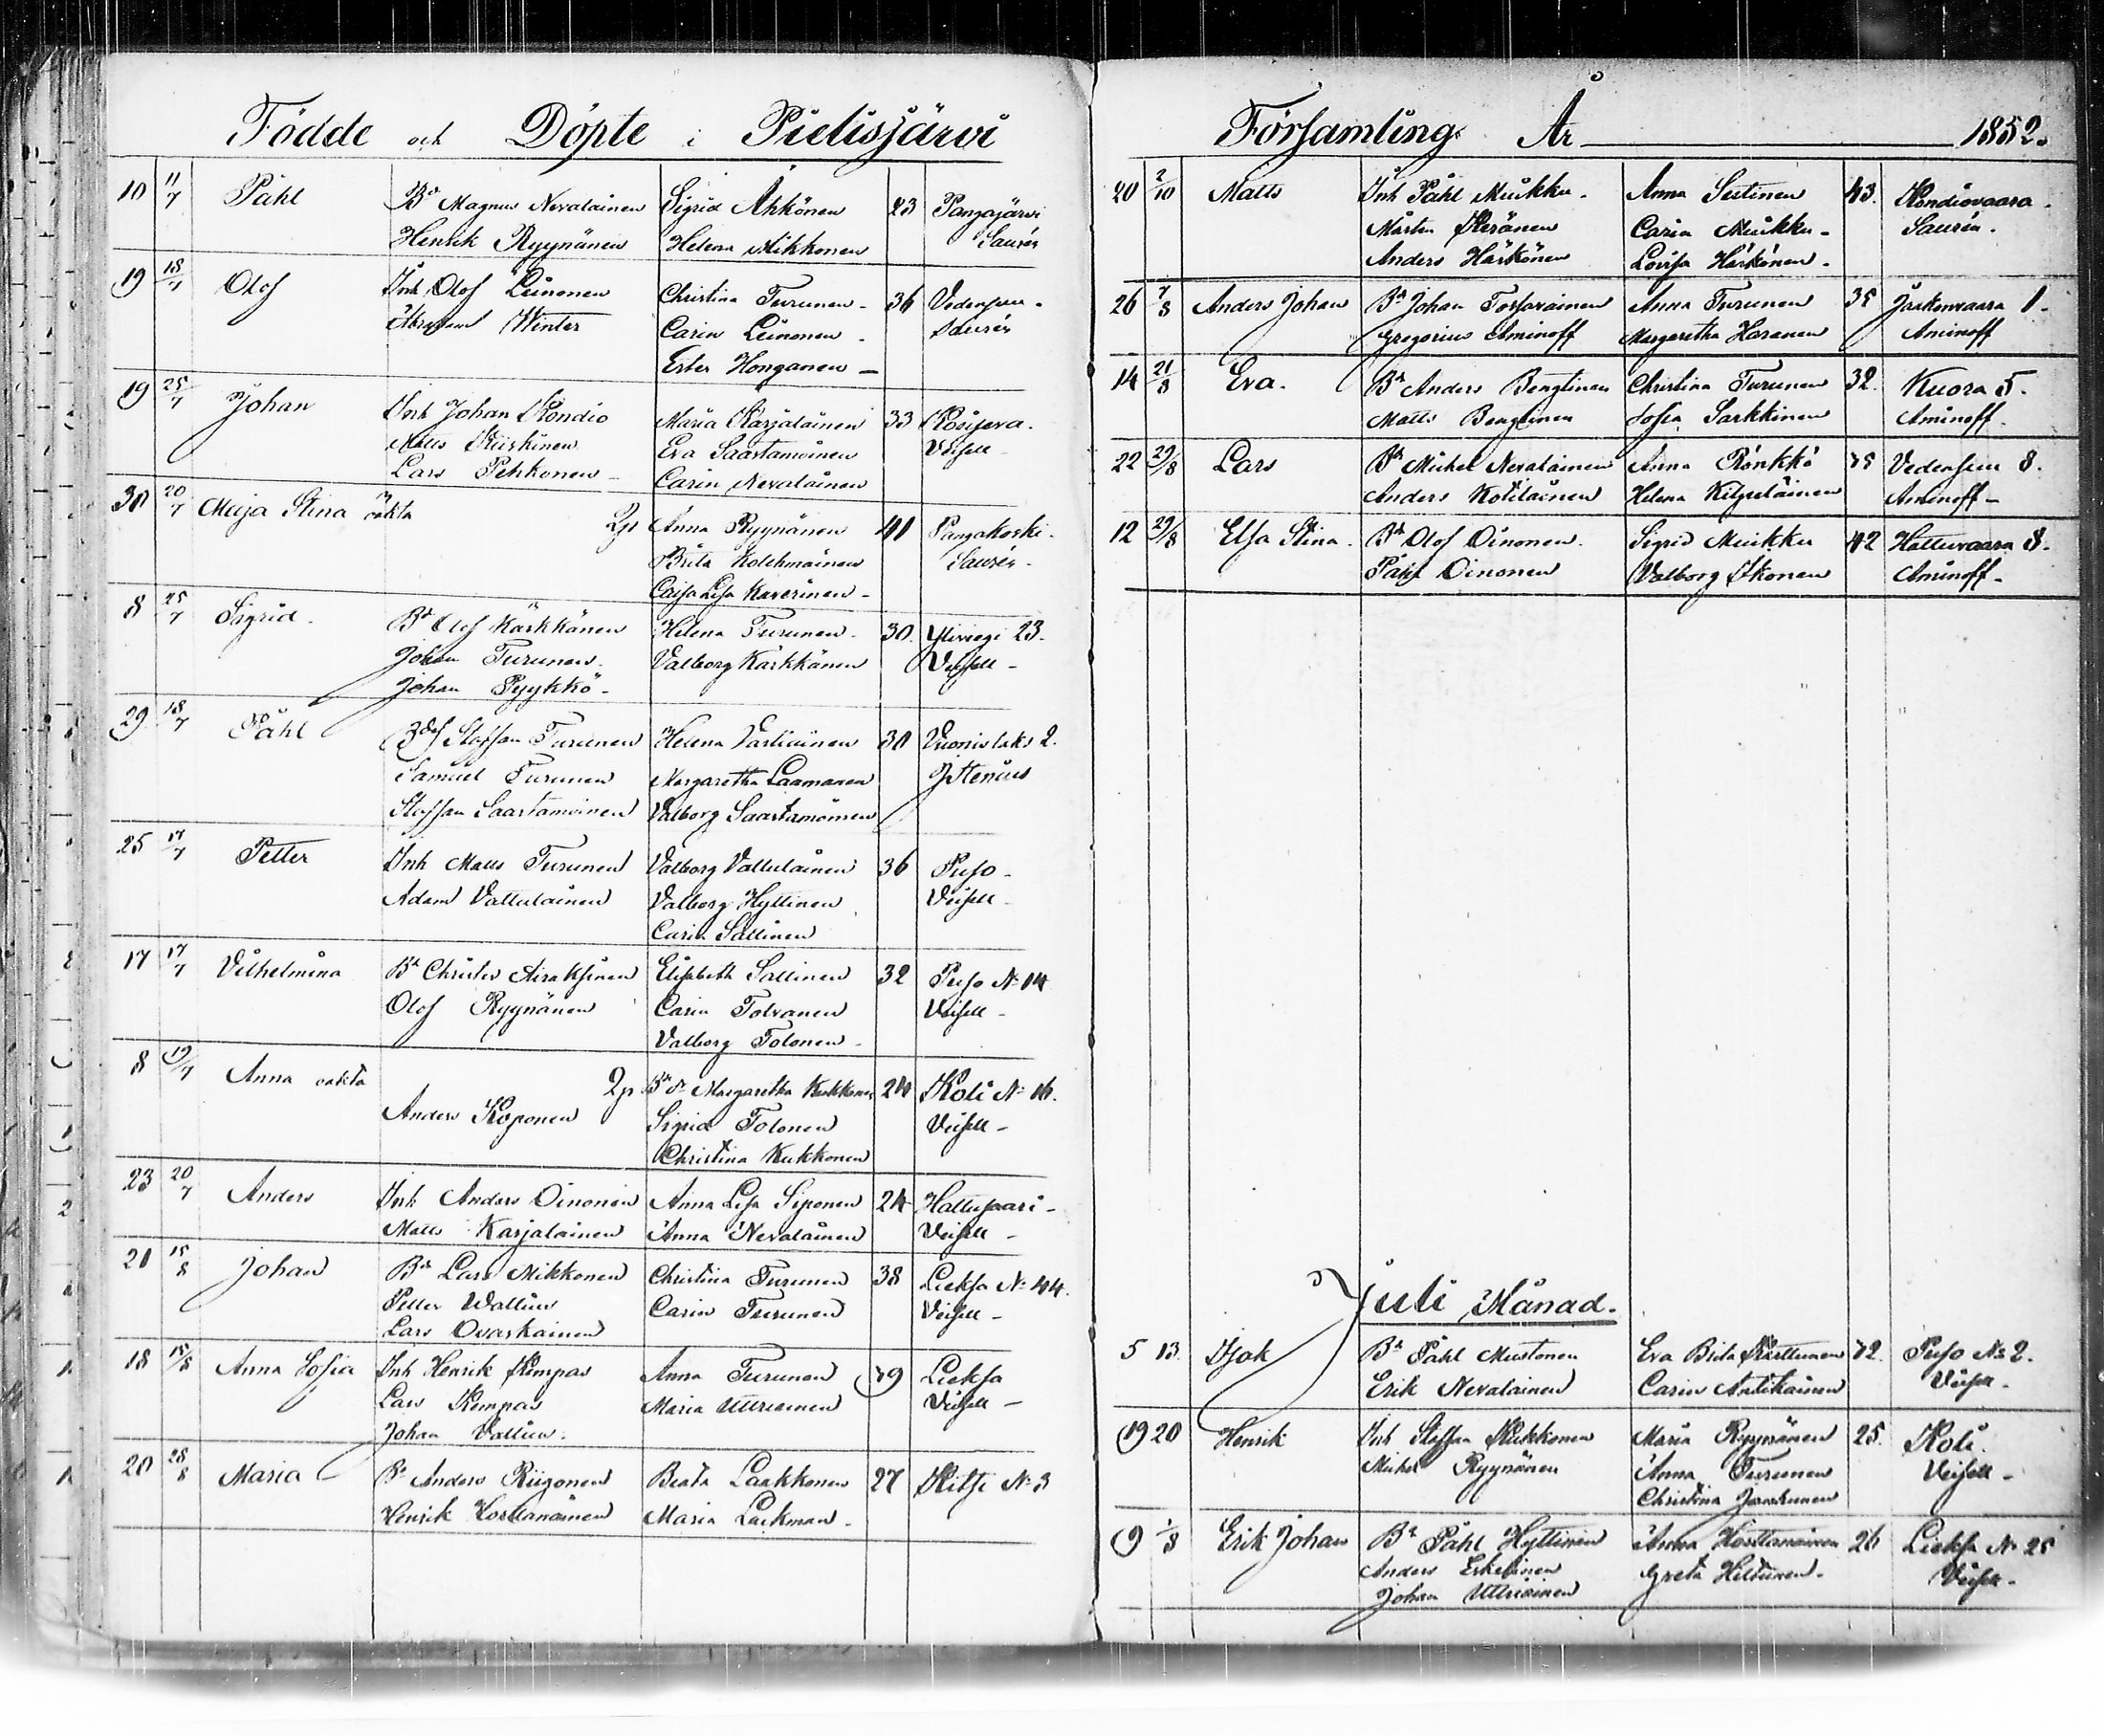 Födde och Döpte i Pielisjärvi
10 11/7 Påhl Bd Magnus Nevalainen Sigrid Ahkönen 23 Pangajärvi
Henrik Ryynänen Helena Mikkonen Saurén
19 18/7 Olof Inh Olof Leinonen Christina Turunen 36 Vedensuu
Abraham Winter Carin Leinonen Saurén
Ester Honganen
19 25/7 Johan Inh Johan Kondio Maria Karjalainen 33
Matts Kiiskinen Eva Saastamoinen
Lars Pehkonen Carin Nevalainen
30 20/7 Maja Stina oäkta Anna Ryynänen 41 Pangakoski
Brita Kolehmainen Saurén
Caisa Lisa Kaverinen
8 25/7 Sigrid Bd Olof Kärkkänen Helena Turunen 30 Yliviegi 23.
Johan Turunen Valborg Kärkkänen
Johan Pyykkö
29 18/7 Påhl Staffan Turunen Helena 30 Vuonislaks 2.
Samuel Turunen Margaretha Laamanen
Staffan Saastamoinen Valborg Saastamoinen
25 17/7 Petter Inh Matts Turunen Valborg Vattulainen 36 Puso
Adam Vattulainen Valborg Hyttinen
Carin Sallinen
17 17/7 Vilhelmina Bd Christer Airaksinen Elisabeth Sallinen 32 Puso No 14
Olof Ryynänen Carin Tolvanen
Valborg Tolonen
8 19/7 Anna oäkta Margaretha Kukkonen 24 Koli No 16.
Anders Koponen Sigrid Tolonen
Christina Kukkonen
23 20/7 Anders Inh Anders Oinonen Anna Lisa Siponen 24 Hattusaari
Matts Karjalainen Anna Nevalainen
21 15/8 Johan Bd Lars Mikkonen Christina Turunen 38 Lieksa No 44.
Petter Wallius Carin Turunen
Lars Ovaskainen
18 15/8 Anna Sofia Inh Henrik Kempas Anna Turunen 39 Lieksa
Lars Kempas Maria Uttriainen
Johan Vallius
20 28/8 Maria Bd Anders Riigonen Beata Laakkonen 27 Kitsi No 3
Henrik Hosttanainen Maria Lackman
Församling År 1852.
20 2/10 Matts Inh Påhl Muikku Anna Sutinen 43. Kondiovaara
Mårten Keränen Carin Muikku Saurén
Anders Härkönen Lovisa Härkönen
26 7/8 Anders Johan Bd Johan Anna Turunen 35 1.
Gregorius Aminoff Margaretha Haranen Aminoff
14 21/8 Eva. Bd Anders Bengtinen Christina Turunen 32. Kuora 5.
Matts Bengtinen Sofia Sarkkinen Aminoff
22 29/8 Lars Bd Michel Nevalainen Anna Rönkkö 35 Vedensuu 8.
Anders Kotilainen Helena Aminoff
12 29/8 Elsa Stina Bd Olof Oinonen Sigrid Muikku 42 Hattuvaara 8.
Påhl Oinonen Valborg Ikonen Aminoff
Juli Månad.
5 13 Isak Bd Påhl Mustonen Eva Brita Karttunen 32. Puso No 2.
Erik Nevalainen Carin Antikainen
19 20 Henrik Inh Staffan Kukkonen Maria Ryynänen 25. Koli.
Michel Ryynänen Anna Turunen
Christina
9 1/8 Erik Johan Bd Påhl Hyttinen Anna Hosttanainen 26 Lieksa No 25
Anders Eskelinen Greta Hiltunen
Johan Uttriainen